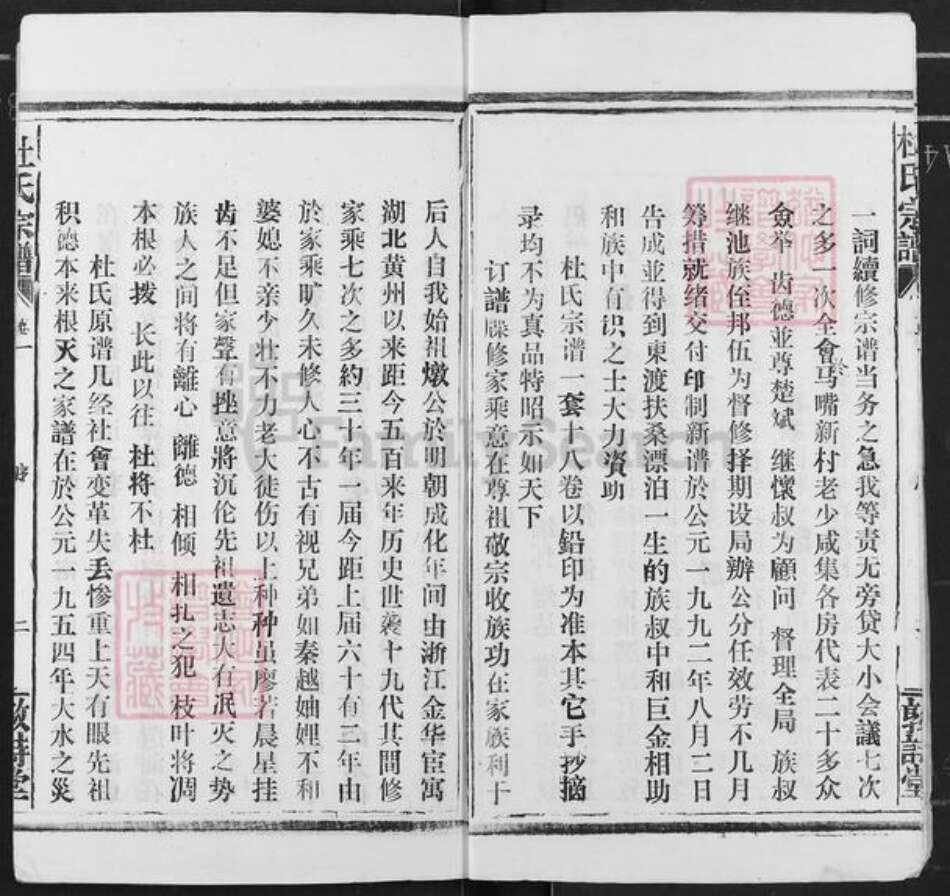 杜氏宗譜
一詞續修宗谱当务之急我等责无旁贷大小会議七次
之多一次全會於马嘴新村老少咸集各房代表二十多众
僉举 齿德並尊楚斌 继懷叔为顧问 督理全局 族叔
继池族侄邦伍为督修择期设局辦公分任效劳不几月
筹措就绪交付印制新谱於公元一九九二年八月二日
告成並得到東渡扶桑漂泊一生的族叔中和巨金相助
和族中有识之士大力资助
杜氏宗谱一套十八卷以铅印为准本其它手抄摘
录均不为真品特昭示如天下
订譜牒修家乘意在尊祖敬宗收族功在家族利于
后人自我始祖燉公於明朝成化年间由浙江金华宦寓
湖北黄州以来距今五百来年历史世袭十九代其間修
家乘七次之多約三十年一届今距上届六十有三年由
於家乘旷久未修人心不古有视兄弟如秦越妯娌不和
婆媳不亲少壮不力老大徒伤以上种种虽廖若晨星挂
齿不足但家聲有挫意將沉伦先祖遺志大有泯灭之势
族人之间将有離心 離德 相倾 相扎之犯 枝叶将凋
本根必拨 长此以往 杜将不杜
杜氏原谱几经社會变革失丢惨重上天有眼先祖
积德本来根灭之家譜在於公元一九五四年大水之災
杜氏宗譜
卷一
二